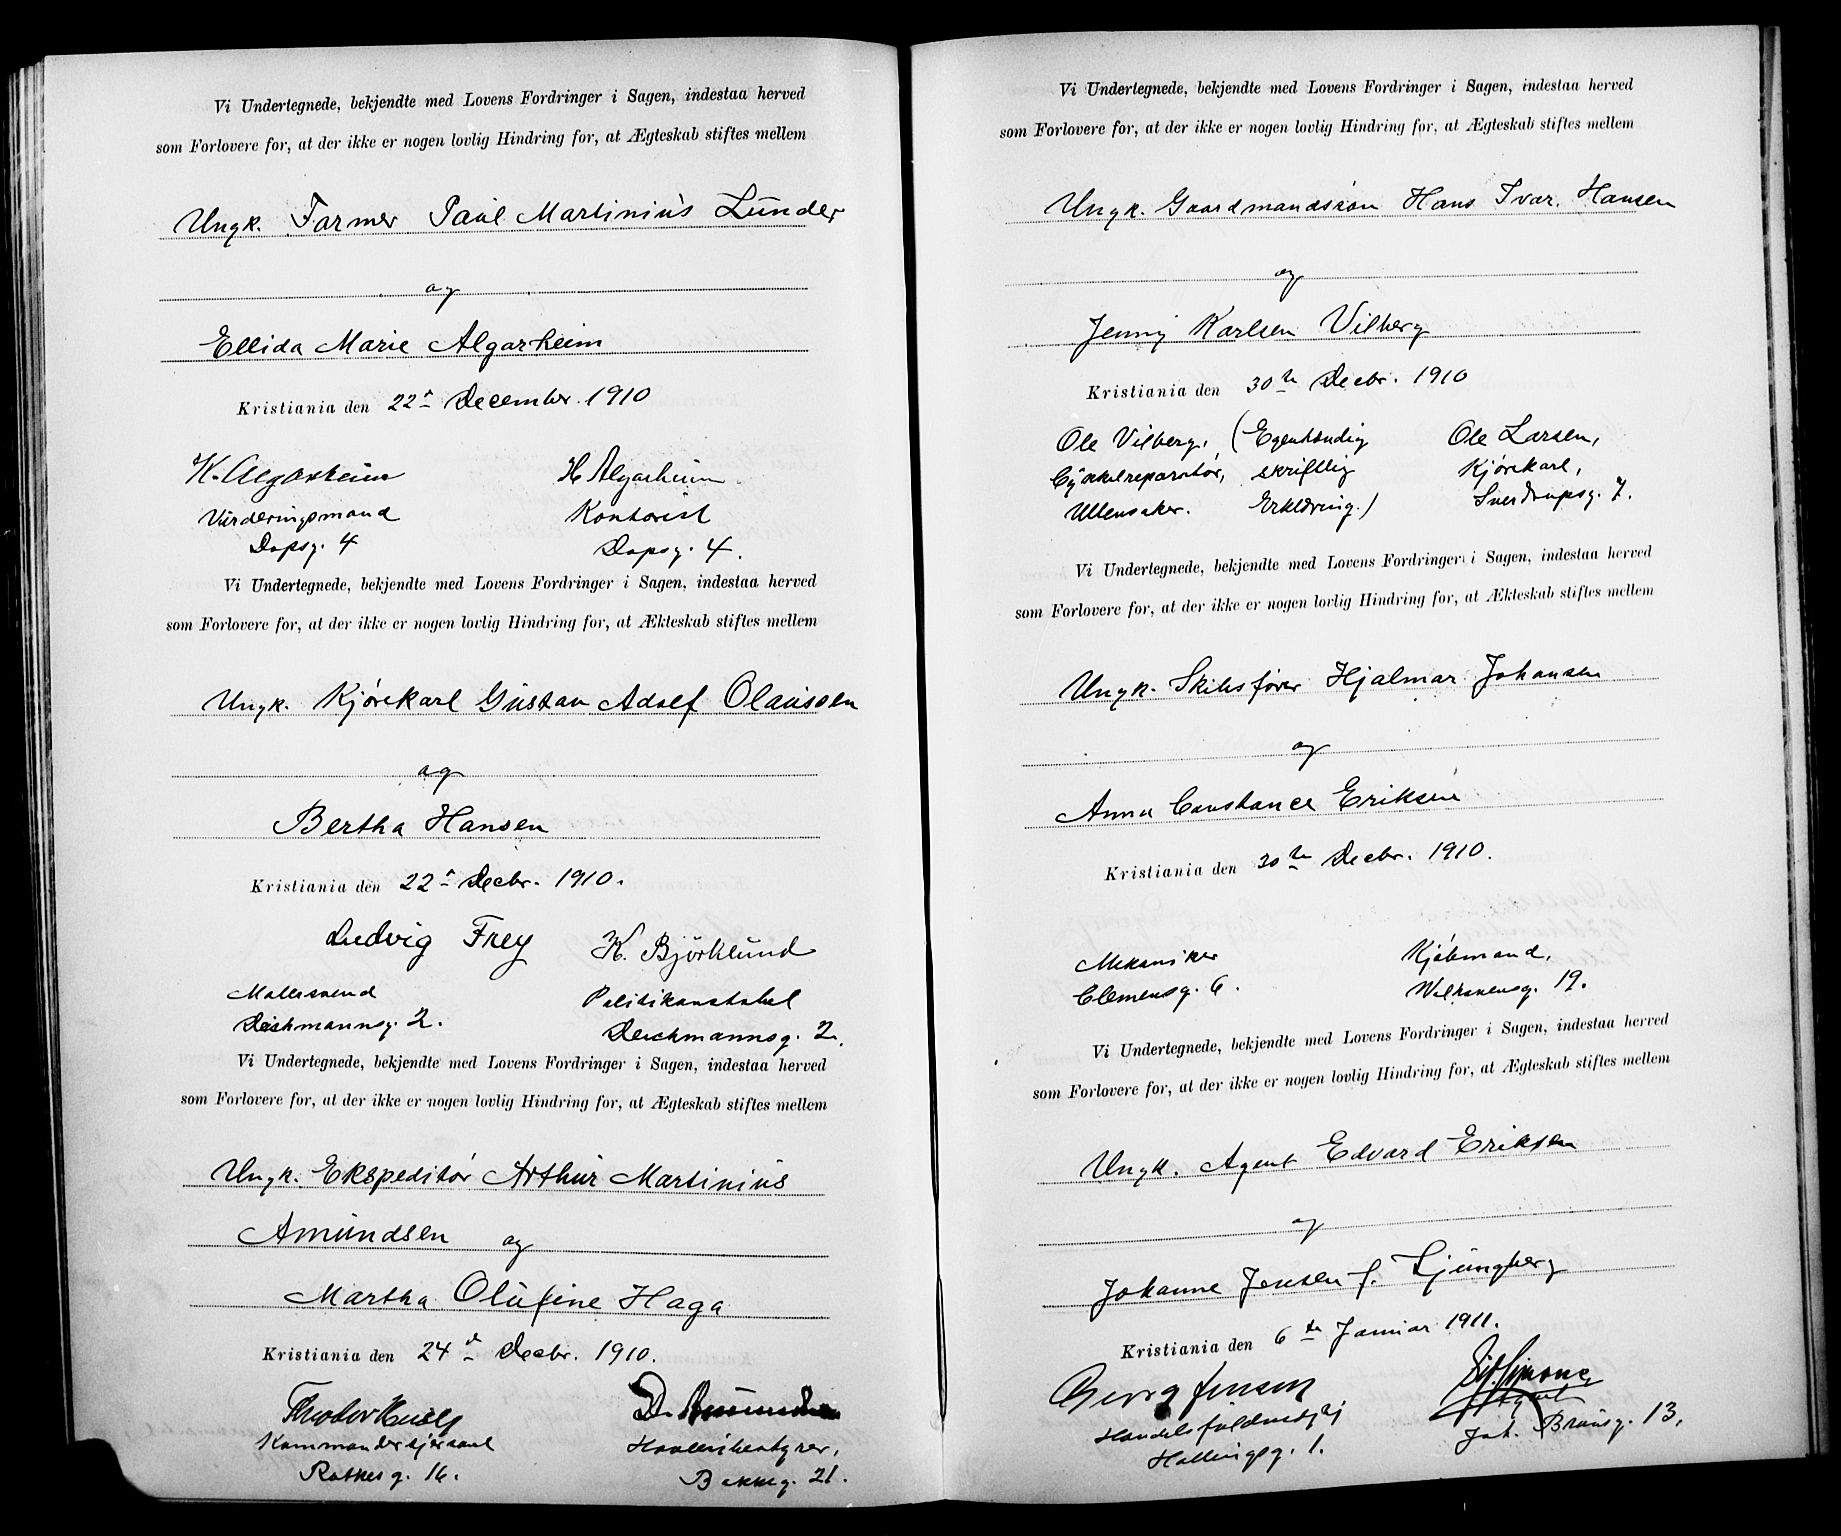 Vi Undertegnede, bekjendte med Lovens Fordringer i Sagen, indestaa herved
som Forlovere for, at der ikke er nogen lovlig Hindring for, at Ægteskab stiftes mellem
Ungk. Farmer Paul Martinius Lunder
og
Ellida Marie Algarheim
Kristiania den 22de December 1910
K. Algarheim
H Algarheim
Vurderingsmand
Kontorist
Dopsg. 4
Dopsg. 4.
Vi Undertegnede, bekjendte med Lovens Fordringer i Sagen, indestaa herved
som Forlovere for, at der ikke er nogen lovlig Hindring for, at Ækteskab stiftes mellem
Ungk. Kjørekarl Gustav Adolf Olaussen
og
Bertha Hansen
Kristiania den 22de Decbr. 1910.
Ludvig Frey
K. Björklund
Malersvend
Politikonstabel
Deichmannsg. 2.
Deichmannsg. 2.
Vi Undertegnede, bekjendte med Lovens Fordringer i Sagen, indestaa herved
som Forlovere for, at der ikke er nogen lovlig Hindring for, at Ægteskab stiftes mellem
Ungk. Ekspeditør Arthur Martinius
Amundsen og
Martha Olufine Haga
Kristiania den 24de Decbr. 1910.
Theodor
D. Amundsen
Rathkesg. 16.
Bakkeg. 21.
Vi Undertegnede, bekjendte med Lovens Fordringer i Sagen, indestaa herved
som Forlovere for, at der ikke er nogen lovlig Hindring for, at Ægteskab stiftes mellem
Ungk. Gaardmandssøn Hans Ivar Hansen
og
Jenny Karlsen Vilberg
Kristiania den 30te Decbr. 1910
Ole Vilberg, (Egenhændig
Ole Larsen,
Cykkelreparatør, skriftlig
Kjørekarl,
Ullensaker. Erklæring.)
Sverdrupsg. 7.
Vi Undertegnede, bekjendte med Lovens Fordringer i Sagen, indestaa herved
som Forlovere for, at der ikke er nogen lovlig Hindring for, at Ækteskab stiftes mellem
Ungk. Skibsfører Hjalmar Johansen
og
Anna Constance Eriksen
Kristiania den 30te Decbr. 1910.
Mekaniker
Kjøbmand,
Clemensg. 6.
19.
Vi Undertegnede, bekjendte med Lovens Fordringer i Sagen, indestaa herved
som Forlovere for, at der ikke er nogen lovlig Hindring for, at Ægteskab stiftes mellem
Ungk. Agent Edvard Eriksen
og
Johanne Jensen f. Ljungberg
Kristiania den 6te Januar 1911.
Georg Jensen
Agent
Handelsfuldmægtig
Joh. Brunsg. 13.
Hallingsg. 1.